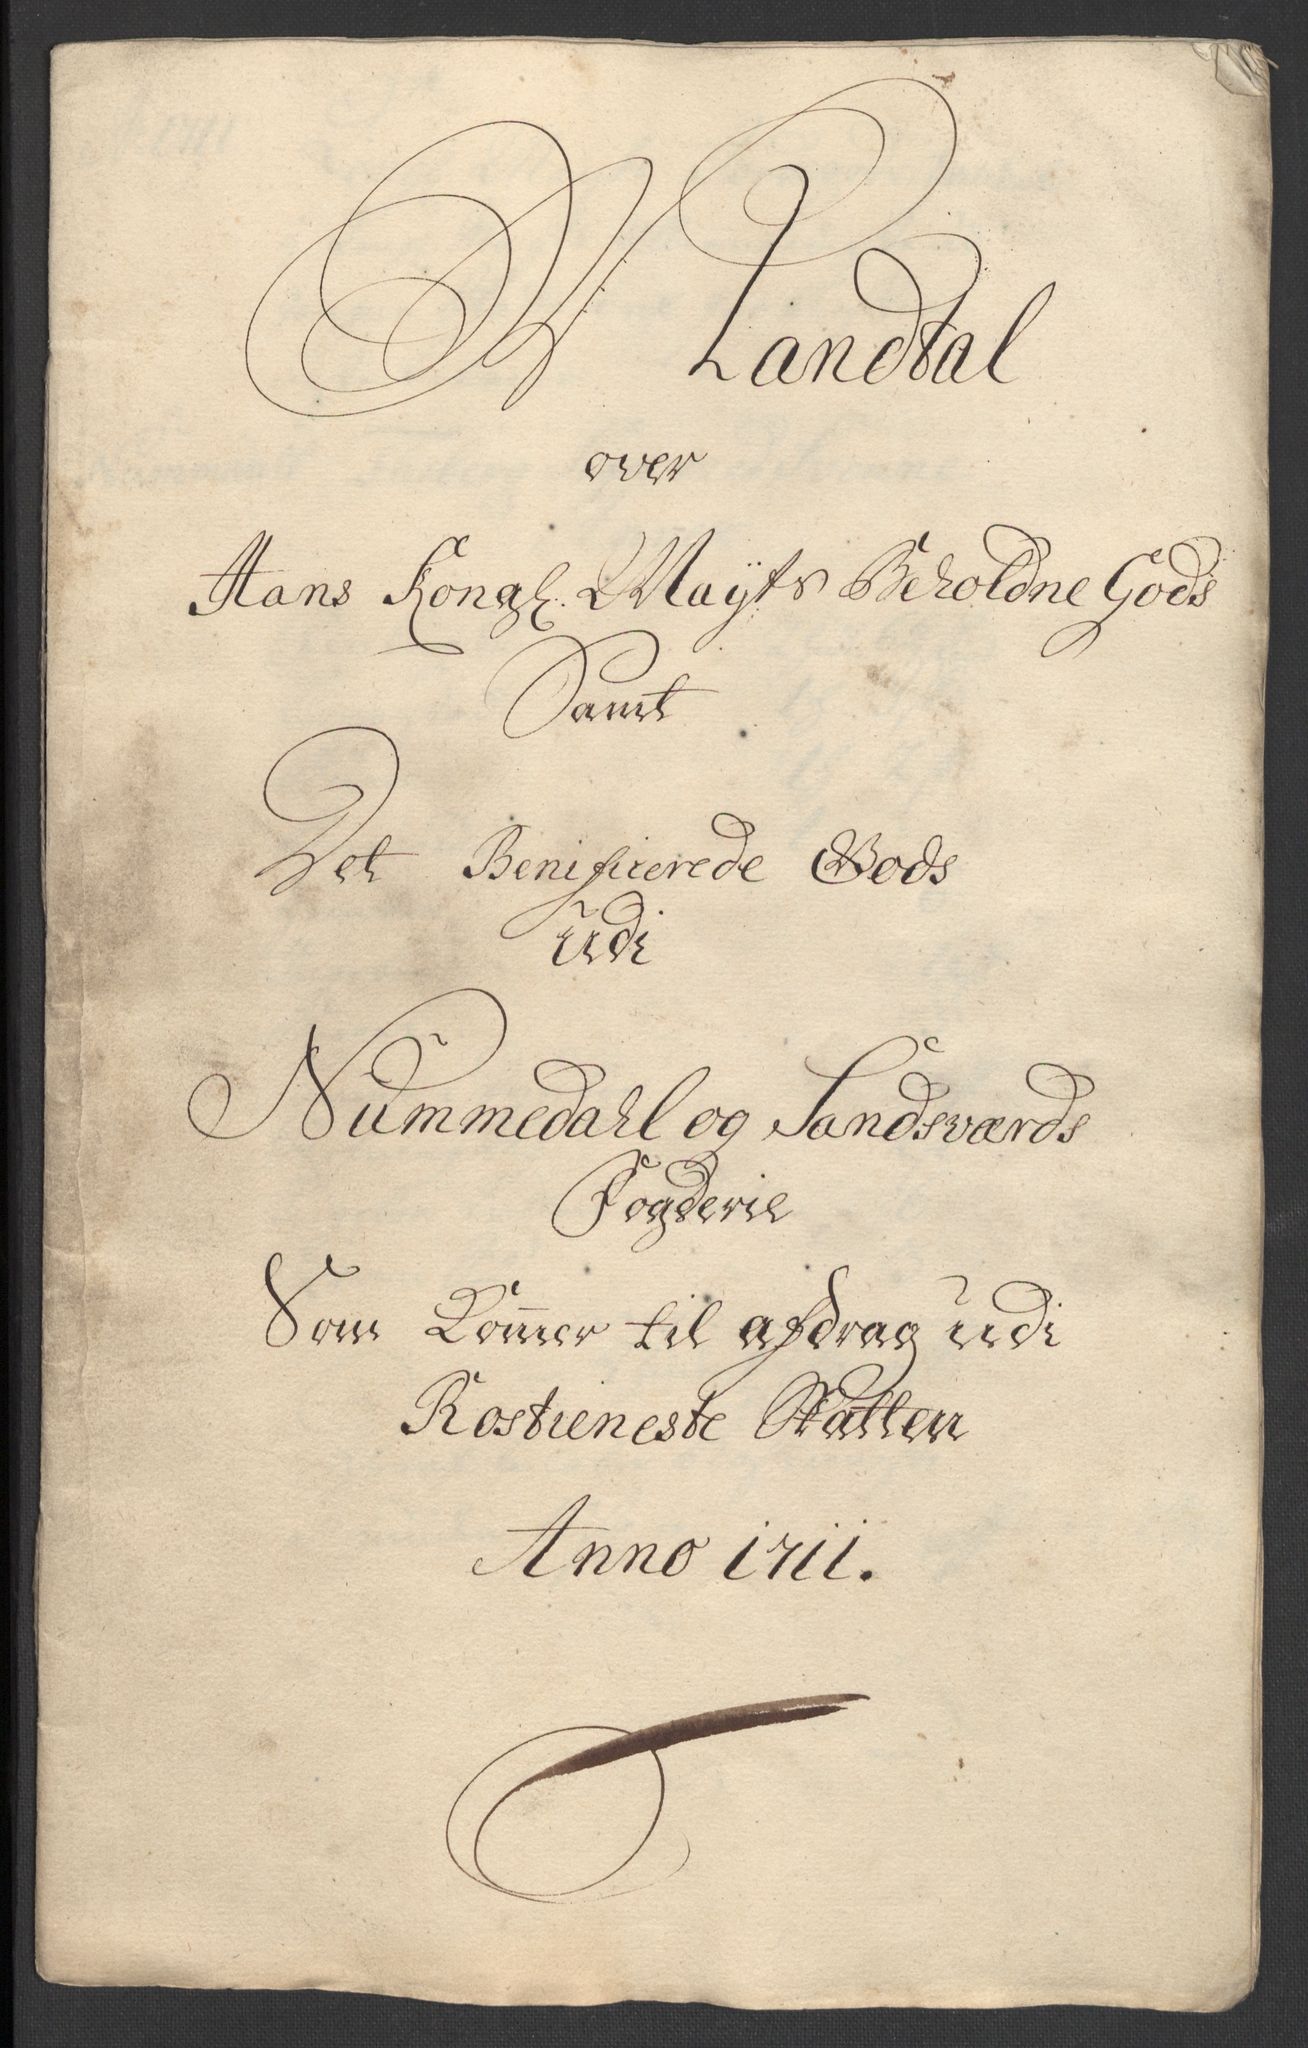 Landtal
over
Hans Kongl. Mayts Beholdne Gods
Samt
Det Benificerede Gods
udi
Nummedahl og Sandsværds
Fogderie
Som Kom̅er til afdrag udi
Rostieneste Skatten
Anno 1711.